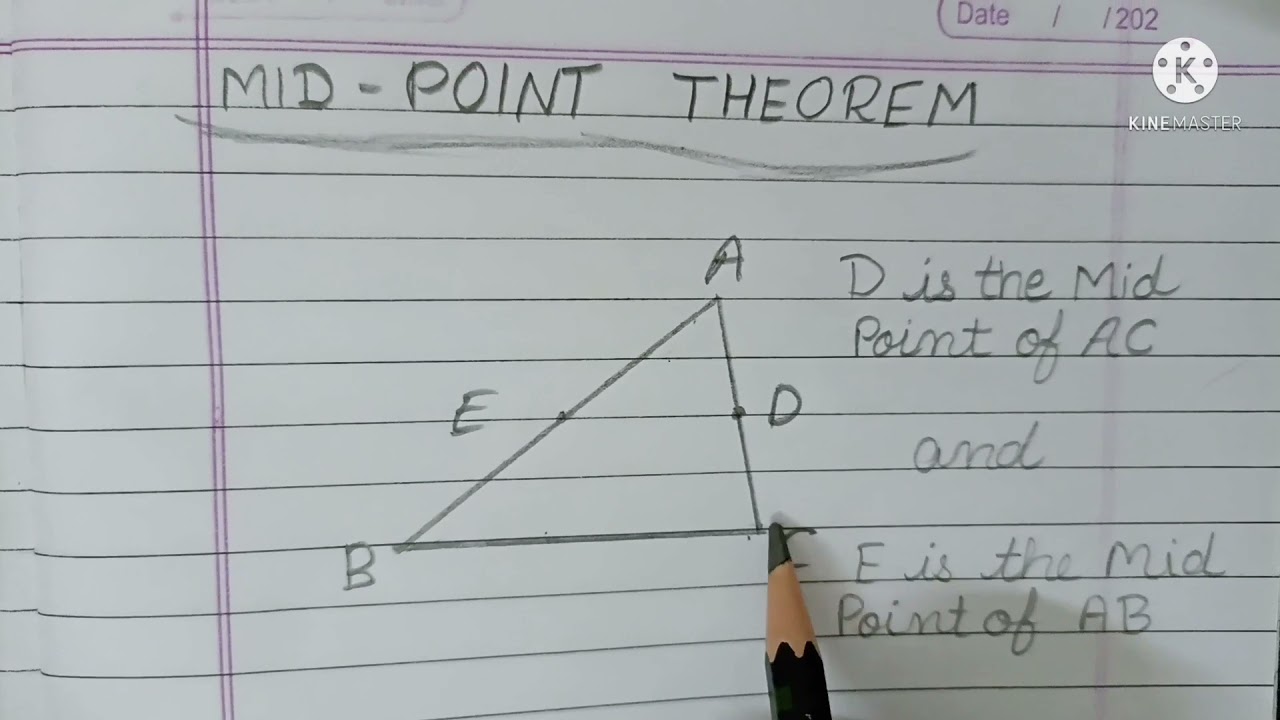 Date / /202
KINEMASTER
MID - POINT THEOREM
A
D is the Mid
Point of AC
E
D
and
B
C
E is the Mid
Point of AB